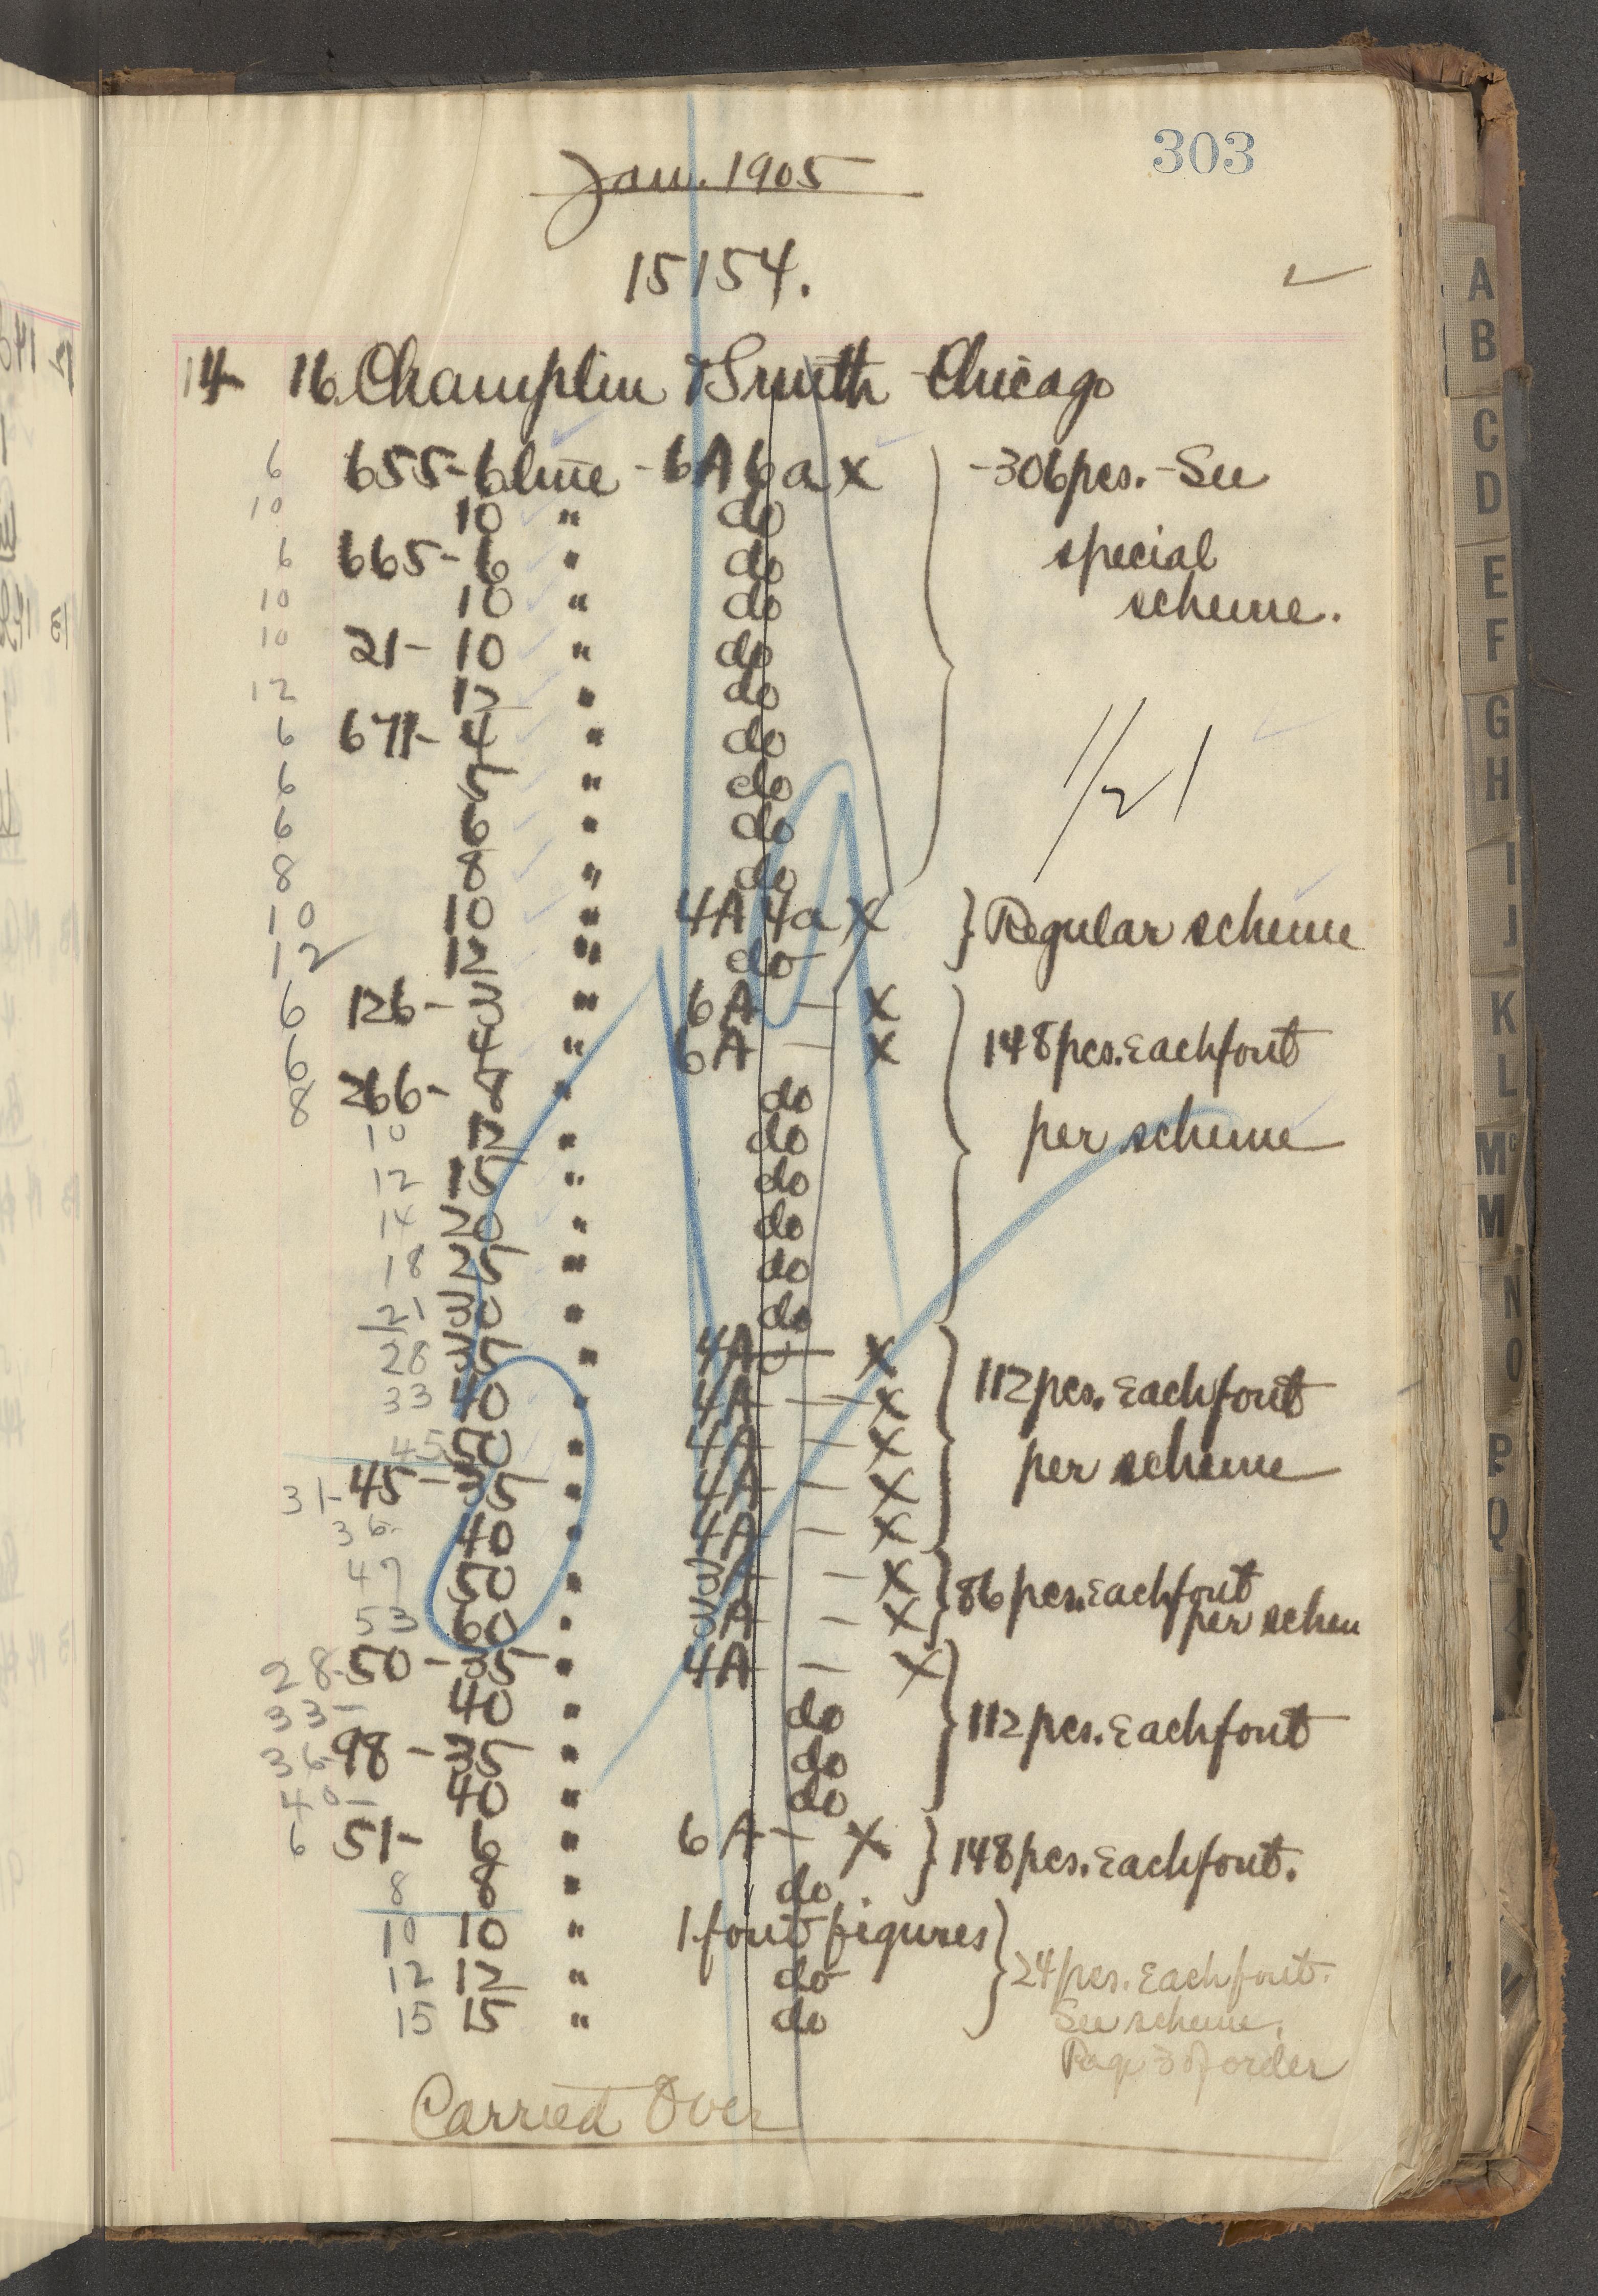 303
Jan. 1905
15154.
14 16 Champlin & Smith Chicago
6 655-6 line - 6A 6a X -306 pcs. - See
10 10 " do
6 665-6 " do special
10 10 " do scheme.
10 21-10 " do
12 12 " do
6 671-4 " do 1/21
6 5 " do
6 6 " do
8 8 " do
10 10 " 4A 4a X } Regular scheme
12 12 " do
6 126-3 " 6A - X
6 4 " 6A - X 148 pcs. Each font
8 266-8 " do
10 12 " do per scheme
12 15 " do
14 20 " do
18 25 " do
21 30 " do
28 35 " 4A - X
33 40 " 4A - X 112 pcs. Each font
45 50 " 4A - X per scheme
31-45-35 " 4A - X
36- 40 " 4A - X
47 50 " 3A - X 86 pcs. Each font
53 60 " 3A - X per schem
28-50-35 " 4A - X
33- 40 " do 112 pcs. Each font
36-98-35 " do
40- 40 " do
6 51-6 " 6A - X } 148 pcs. Each font.
8 8 " do
10 10 " 1 font figures
12 12 " do 24 pcs. Each font.
15 15 " do See scheme.
Page 3 of order
Carried Over
A
B
C
D
E
F
G
H
I
J
K
L
Mc
M
N
O
P
Q